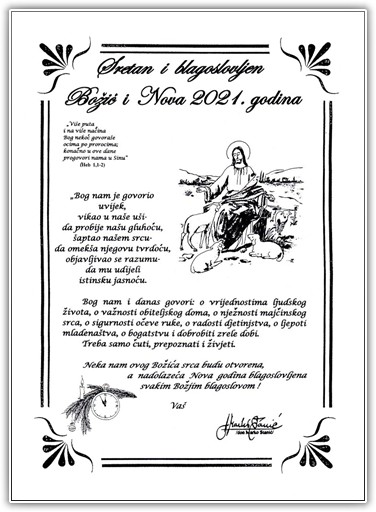 Sretan i blagoslovljen
Božić i Nova 2021. godina
„Više puta
i na više načina
Bog nekoć govoraše
ocima po prorocima;
konačno u ove dane
progovori nama u Sinu“
(Heb 1,1-2)
„Bog nam je govorio
uvijek,
vikao u naše uši-
da probije našu gluhoću,
šaptao našem srcu-
da omekša njegovu tvrdoću,
objavljivao se razumu-
da mu udijeli
istinsku jasnoću.
Bog nam i danas govori: o vrijednostima ljudskog
života, o važnosti obiteljskog doma, o nježnosti majčinskog
srca, o sigurnosti očeve ruke, o radosti djetinjstva, o ljepoti
mladenaštva, o bogatstvu i dobrobiti zrele dobi.
Treba samo čuti, prepoznati i živjeti.
Neka nam ovog Božića srca budu otvorena,
a nadolazeća Nova godina blagoslovljena
svakim Božjim blagoslovom !
Vaš
don Marko Stanić